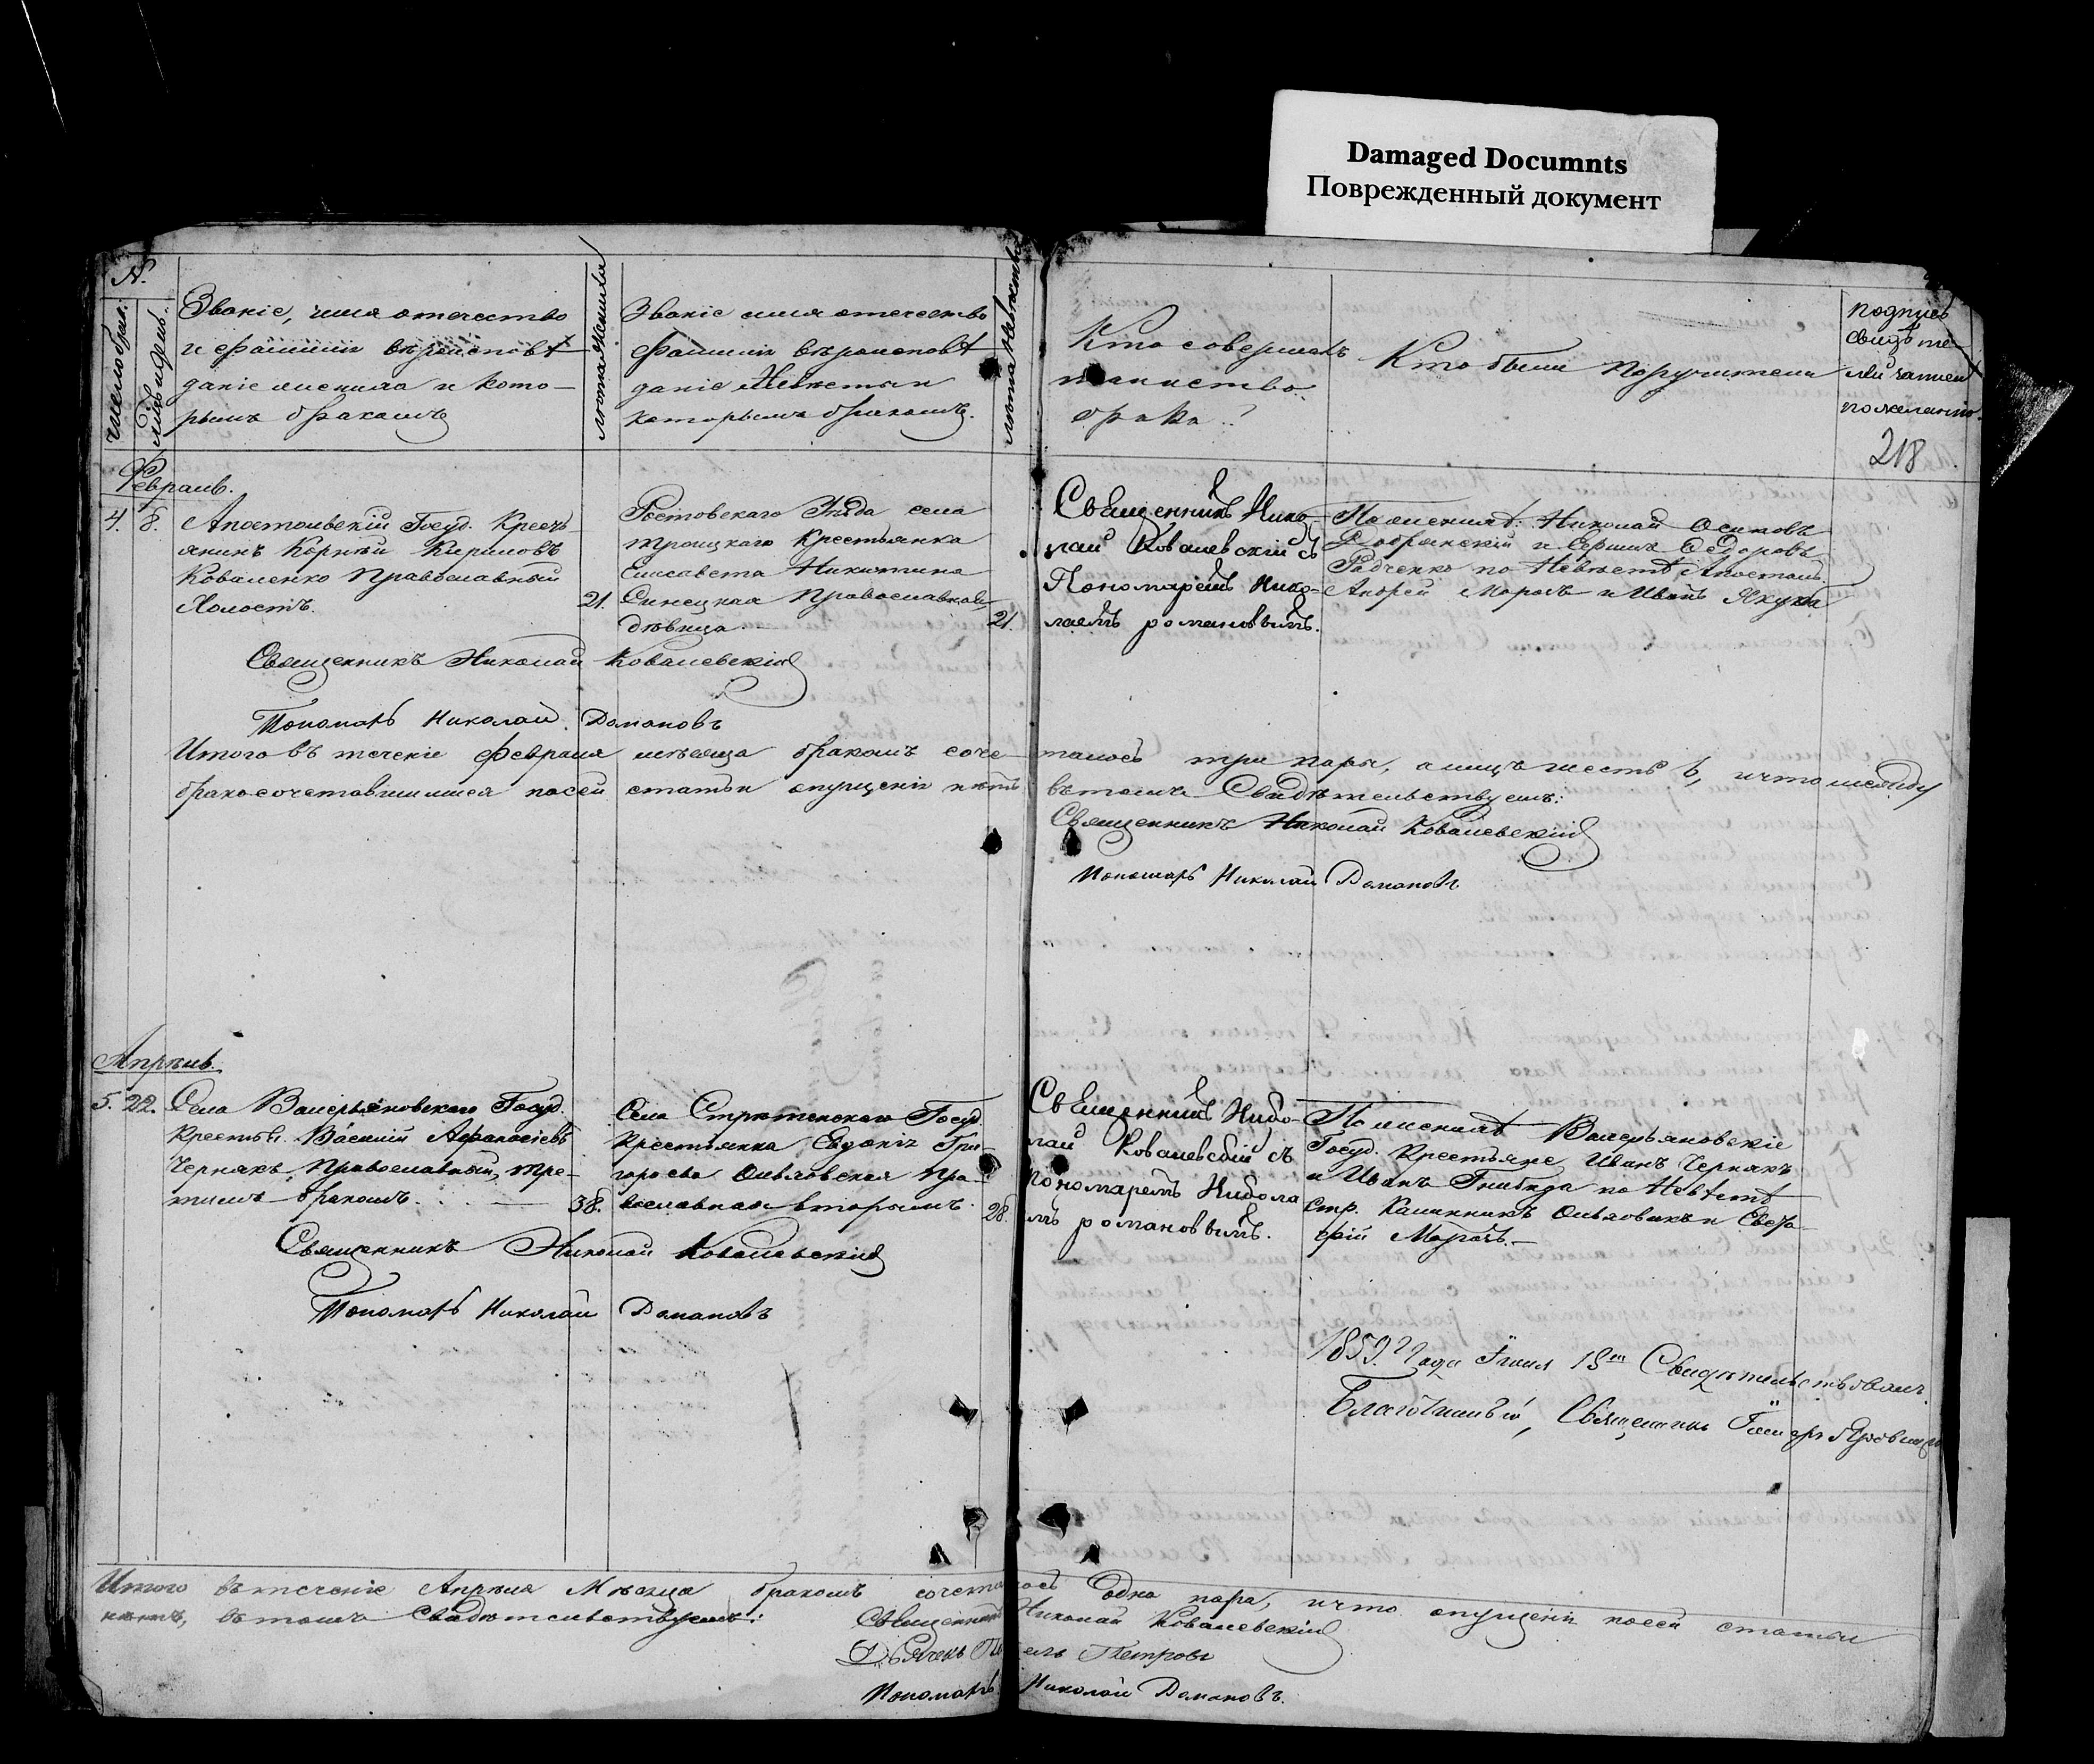 Damaged Documnts
Поврежденный документ
N.
число брак.
мѣс. и день.
Званіе, имя отечество
и фамиліи вѣроисповѣ
даніе жениха и кото-
рымъ бракомъ
лѣта жениха
Званіе имя отечество
фамиліи вѣроисповѣ
даніе Невѣсты и
которымъ бракомъ.
лѣта невѣсты
Кто совершалъ
таинство
брака?
Кто были Поручители
подпись
свидѣте-
лей записи
по желанію.
218
Февраль.
4. 8. Апостольскій Госуд. Кресть
янинъ Корнѣй Кириловъ
Коваленко Православный
Холостъ. 21.
Ростовскаго Уѣзда села
Троицкаго Крестьянка
Елисавета Никитина
Синецкая Православная
дѣвица. 21.
Священникъ Нико-
лай Ковалевскій съ
Пономаремъ Нико-
лаемъ романовымъ.
По женихѣ: Николай Осиповъ
и Ѳедоровъ
Радченко по Невѣстѣ, Апостол.
Андрей Морозъ и Иванъ Якуба
Священникъ Николай Ковалевскій
Пономарь Николай Романовъ
Итого въ теченіе Февраля мѣсяца бракомъ соче-
талось три пары, а лицъ шесть 6, и что между
бракосочетавшимися по сей статьи опущенія нѣтъ
въ томъ Свидѣтельствуемъ:
Священникъ Николай Ковалевскій
Пономарь Николай Романовъ
Апрѣль.
5. 22. Села Валерьяновскаго Госуд.
Крестьян. Василій Афанасіевъ
Чернякъ, Православный, тре-
тимъ бракомъ. 38.
Села Стрѣтенскаго Госуд.
Крестьянка Евдокія Гри-
горьева Ольховская Пра-
вославная вторымъ. 28.
Священникъ Нико-
лай Ковалевскій съ
Пономаремъ Никола
емъ романовымъ.
По женихѣ Валерьяновскіе
Госуд. Крестьяне Иванъ Чернякъ
и Иванъ Гнибида по Невѣстѣ
Стр. Калинникъ Ольховикъ и
Морозъ.
Священникъ Николай Ковалевскій
Пономарь Николай Романовъ
1859. Года Іюля 13го Свидѣтельствовалъ
Благочинный, Священникъ
Итого въ теченіе Апрѣля Мѣсяца бракомъ сочеталось одна пара, и что опущенія по сей статьи
нѣтъ, въ томъ Свидѣтельствуемъ:
Священникъ Николай Ковалевскій
Дьячекъ Петровъ
Пономарь Николай Романовъ.